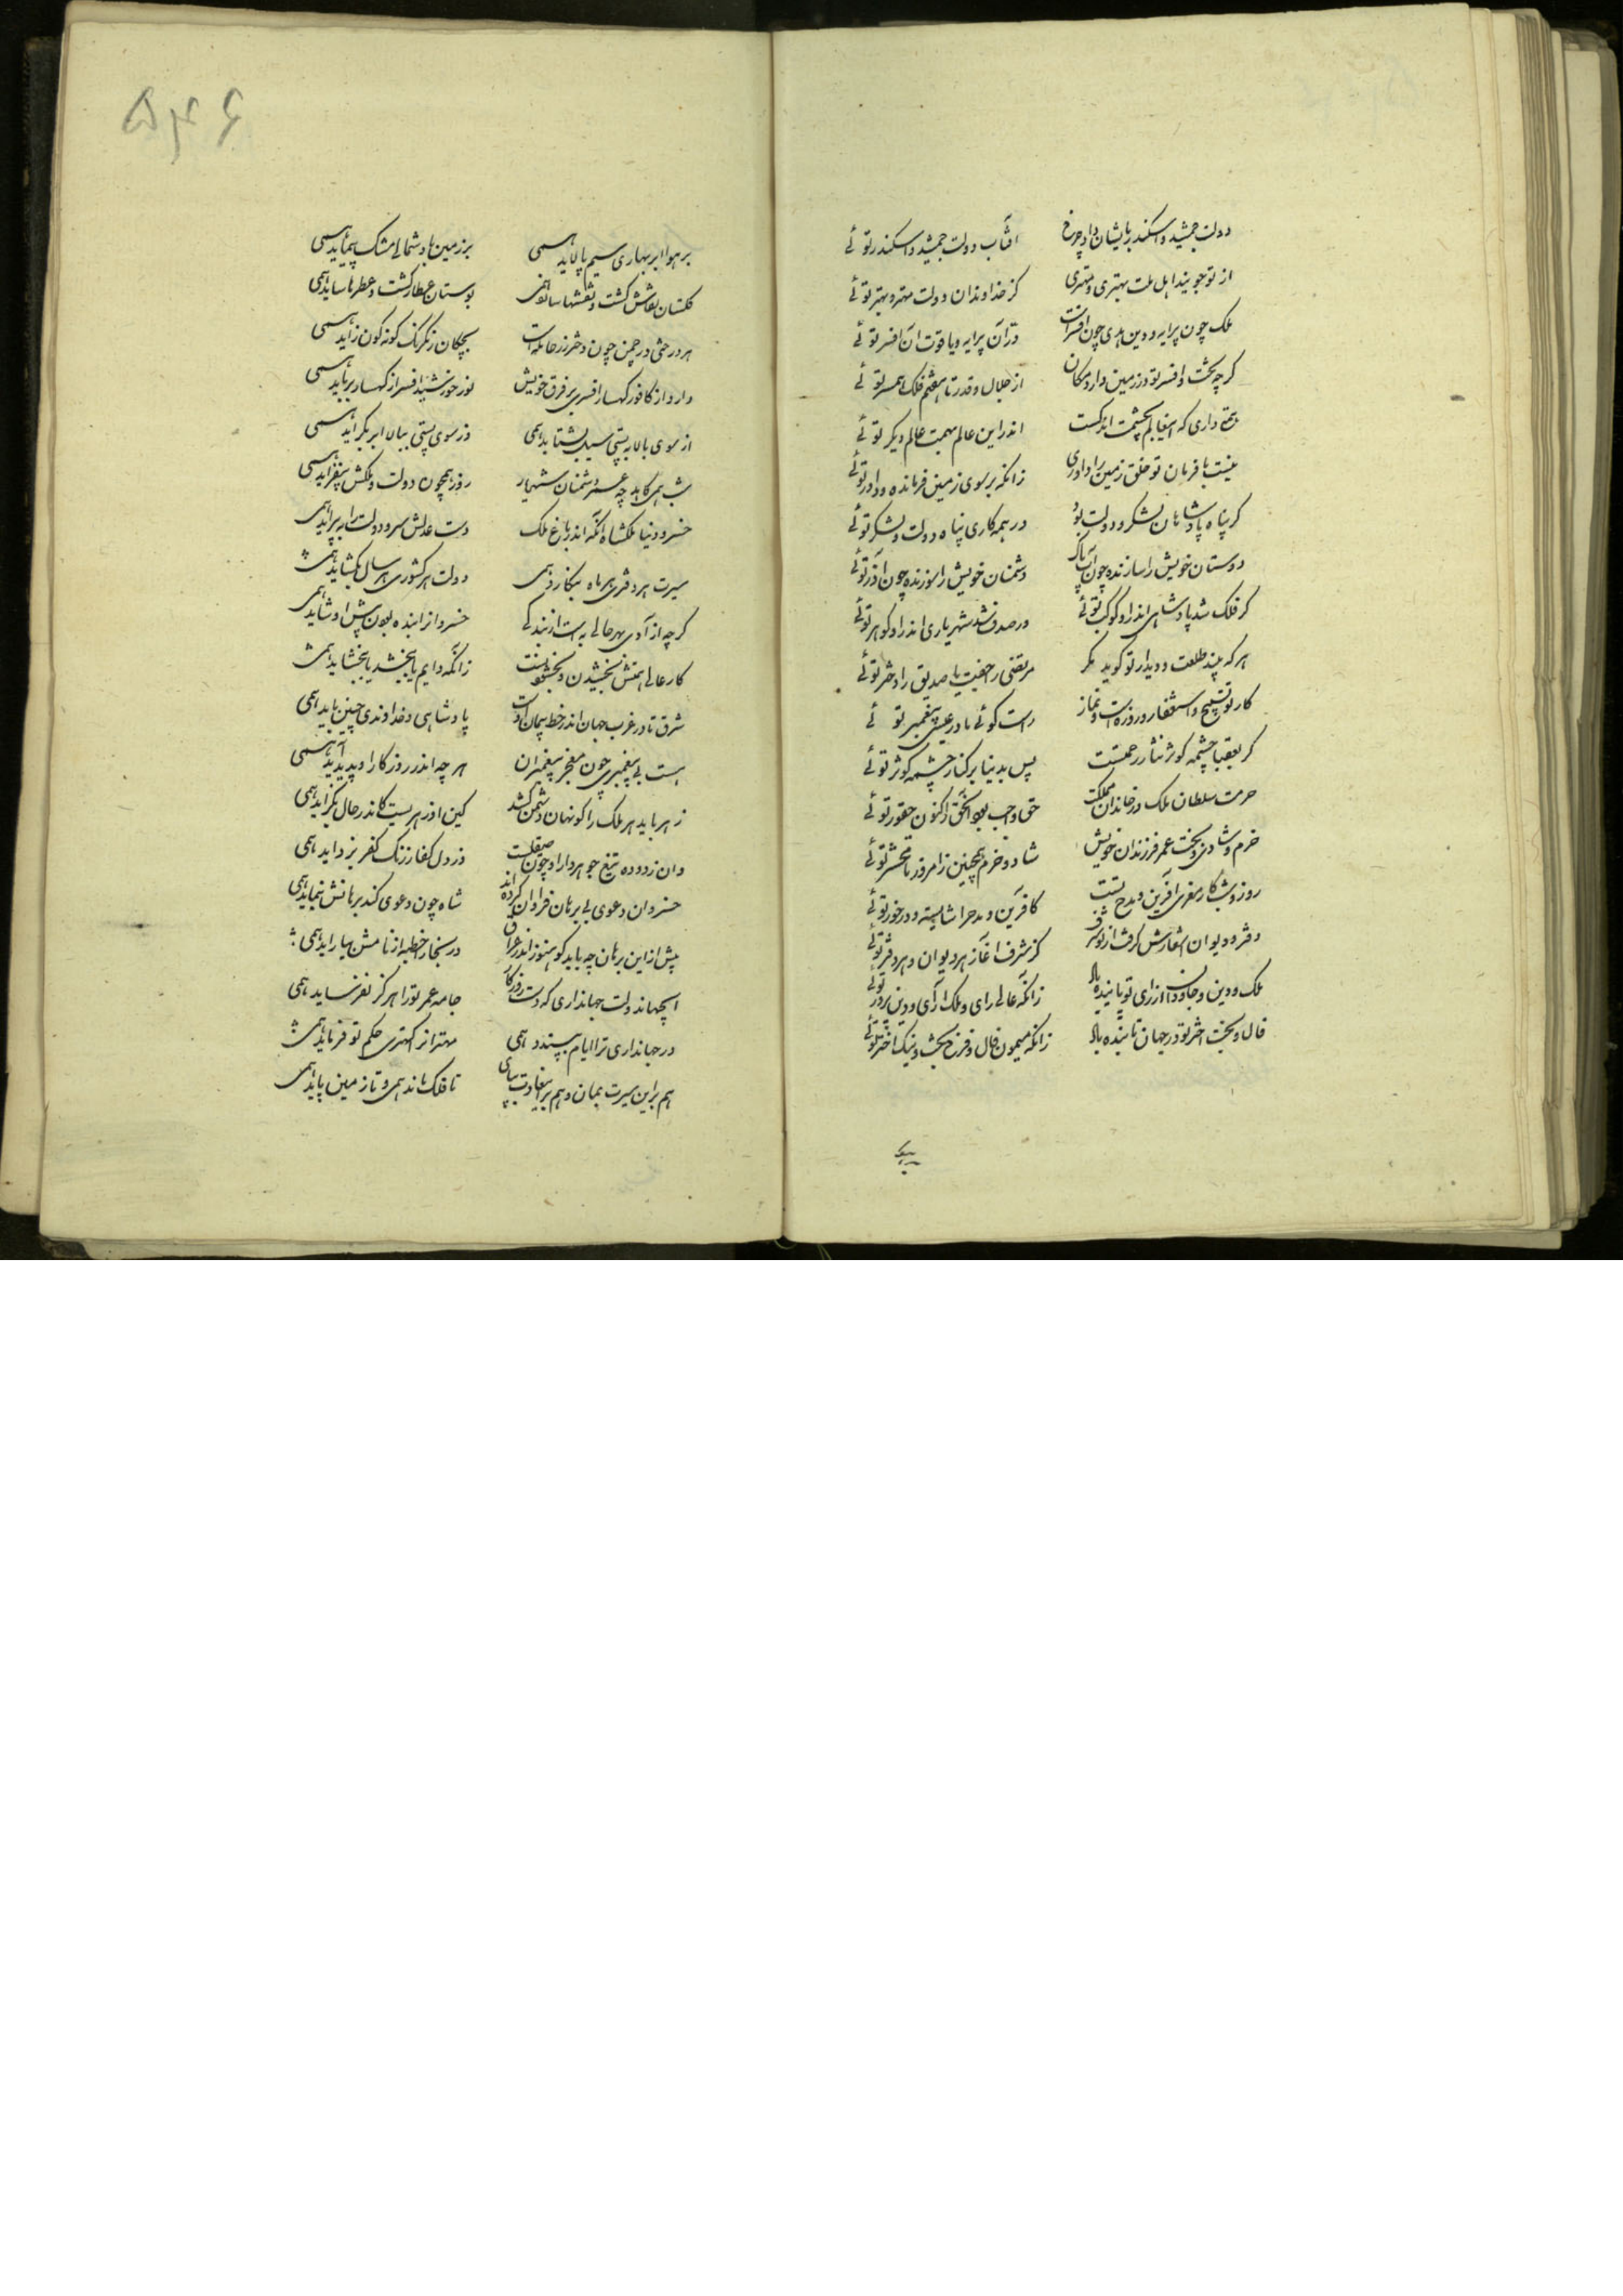 دولت جمشید و اسکندر بایشان داد چرخ
آفتاب دولت جمشید و اسکندر توئے
از تو جویند اهل ملت بهتری و مهتری
کز خداوندان دولت مهتر و بهتر توئے
ملک چون پرایه و دین هدی چون افسر است
در آن پرایه و یاقوت آن افسر توئے
گر چه تخت و افسر تو در زمین دارد مکان
از جلال و قدر تا هفتم فلک همسر توئے
اندر این عالم بهمت عالم دیگر توئے
نیست با فرمان تو خلق زمین را داوری
زانکه بر سوی زمین فرمانده و داور توئے
گر پناه پادشاهان لشکر و دولت بود
در همه کاری پناه دولت و لشکر توئے
دوستان خویش را سازنده چون آب پاک
دشمنان خویش را سوزنده چون آذر توئے
گر فلک شد پادشاهی اندر او کوکب توئے
ور صدف شد شهریاری اندر او گوهر توئے
هر که بیند طلعت و دیدار تو گوید مگر
کار تو تسبیح و استغفار و روزه است و نماز
راست گوئے مادر عیسی پیغمبر توئے
گر بعقبا چشمه کوثر نثار رحمتست
پس بدنیا بر کنار چشمه کوثر توئے
حرمت سلطان ملک در خاندان مملکت
حق واجب بود آنحق را کنون حقور توئے
خرم و شادی ز بخت عمر فرزندان خویش
شاد و خرم همچنین ز امروز تا محشر توئے
روز و شب کار معزی آفرین و مدح تست
کافرین و مدح را شایسته و در خور توئے
دفتر و دیوان اشعارش گرفت از تو شرف
کز شرف آغاز هر دیوان و هر دفتر توئے
ملک و دین جاودان از رای تو پاینده باد
زانکه عالے رای و ملک آرای و دین پرور توئے
فال و بخت اختر تو در جهان تابنده باد
زانکه میمون فال و فرخ بخت و نیک اختر توئے
۵۴۶
بر هوا ابر بهاری سیم پالاید همی
بر زمین باد شمالے مشک پیماید همی
گلستان نقاش گشت و نقشها سازد همی
بوستان عطار گشت و عطرها ساید همی
هر درختی در چمن چون دختر رز حامله است
بچگان رنگ رنگ گونه گون زاید همی
دارد از کافور کهسار افسری بر فرق خویش
نور خورشید افسر از کهسار برباید همی
از سوی بالا به پستی سیل بشتابد همی
وز سوی پستی ببالا ابر بگراید همی
شب همی کاهد چو عمر دشمنان شهریار
روز همچون دولت و ملکش بیفزاید همی
خسرو دنیا ملکشاه آنکه اندر باغ ملک
دست عدلش سرو دولت را به پیراید همی
سیرت هر دفتری هر ماه بنگارد همی
دولت هر کشوری هر سال بگشاید همی
گر چه آزادی بهر حالے به است از بندگے
خسروان را بنده بودن پیش او شاید همی
کار عالے همتش بخشیدن و بخشودنست
زانکه دایم یا ببخشد یا ببخشاید همی
شرق تا در غرب جهان اندر خط پیمان اوست
پادشاهی و خداوندی چنین باید همی
هست بے پیغمبری چون معجز پیغمبران
هر چه اندر روزگار او پدید آید همی
زهر باید هر ملک را کو نهان دشمن کشد
کین او زهریست کاندر حال بگزاید همی
وان زدوده تیغ جوهردار او چون صیقلست
وز دل کفار زنگ کفر بزداید همی
خسروان دعوی بے برهان فراوان کرده اند
شاه چون دعوی کند برهانش بنماید همی
پیش از این برهان چه باید کو هنوز اندر عراق
در بخارا خطبه از نامش بیاراید همی
ایجهاندولت جهانداری که دست روزگار
جامه عمر تو را هرگز نفرساید همی
در جهانداری ترا ایام بپسندد همی
مهتران را کهتری حکم تو فرماید همی
هم بر این سیرت بمان و هم بر این عادت بپای
تا فلک ماند همی و تا زمین پاید همی